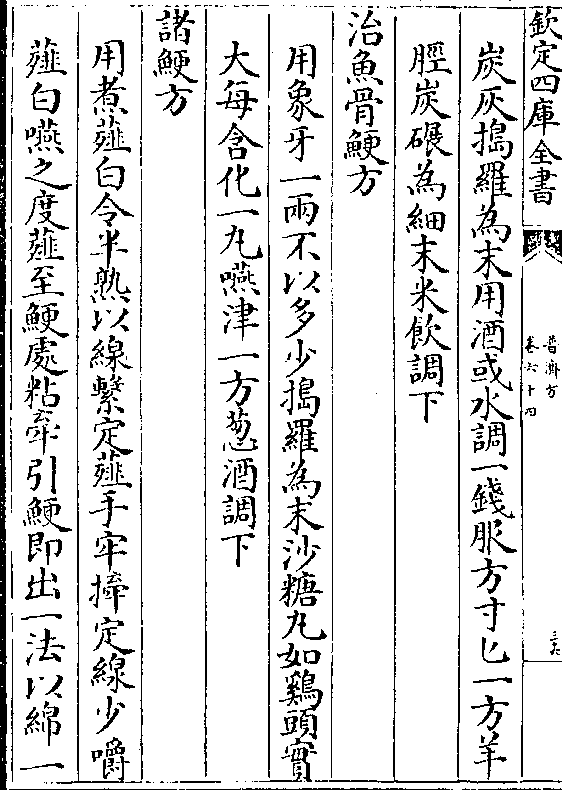 欽定四庫全書
普濟方
卷六十四
三九
炭灰搗羅為末用酒或水調一錢服方寸匕一方羊
脛炭碾為細末米飲調下
治魚骨鯁方
用象牙一兩不以多少搗羅為末沙糖丸如鷄頭實
大每含化一丸嚥津一方葱酒調下
諸鯁方
用煮薤白令半熟以線繫定薤手牢捧定線少嚼
薤白嚥之度薤至鯁處粘牽引鯁即出一法以綿一